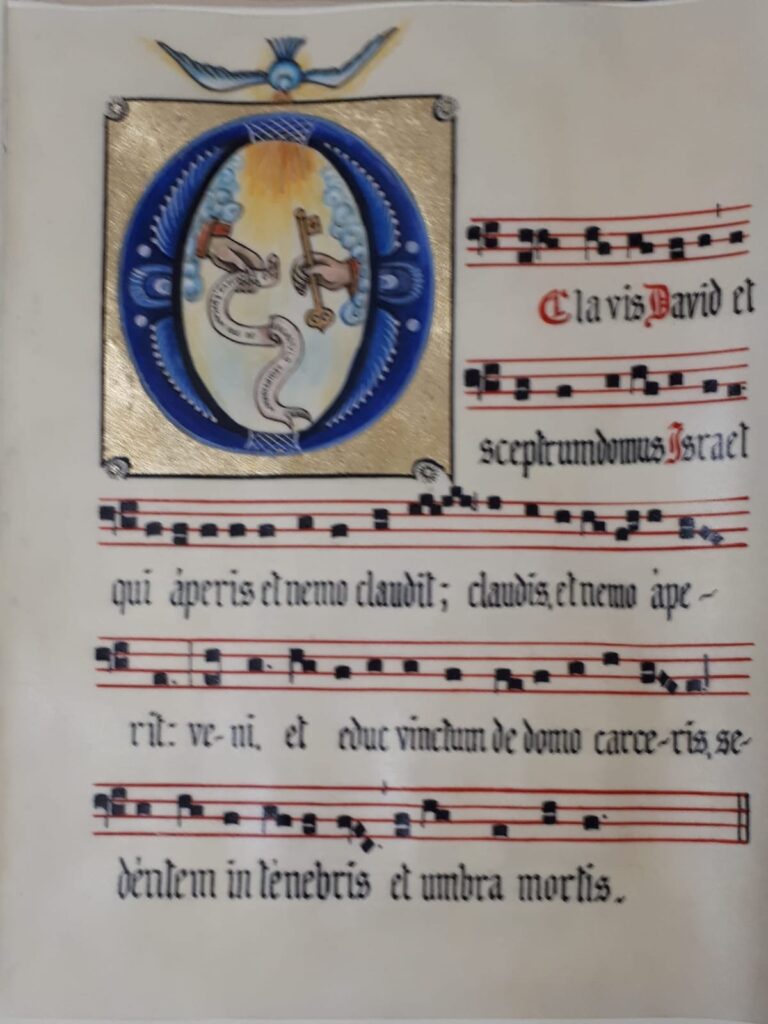 O
Clavis David et
sceptrum domus Israel
qui áperis et nemo claudit; claudis, et nemo ápe-
rit: ve-ni, et educ vinctum de domo carce-ris, se-
déntem in ténebris et umbra mortis.